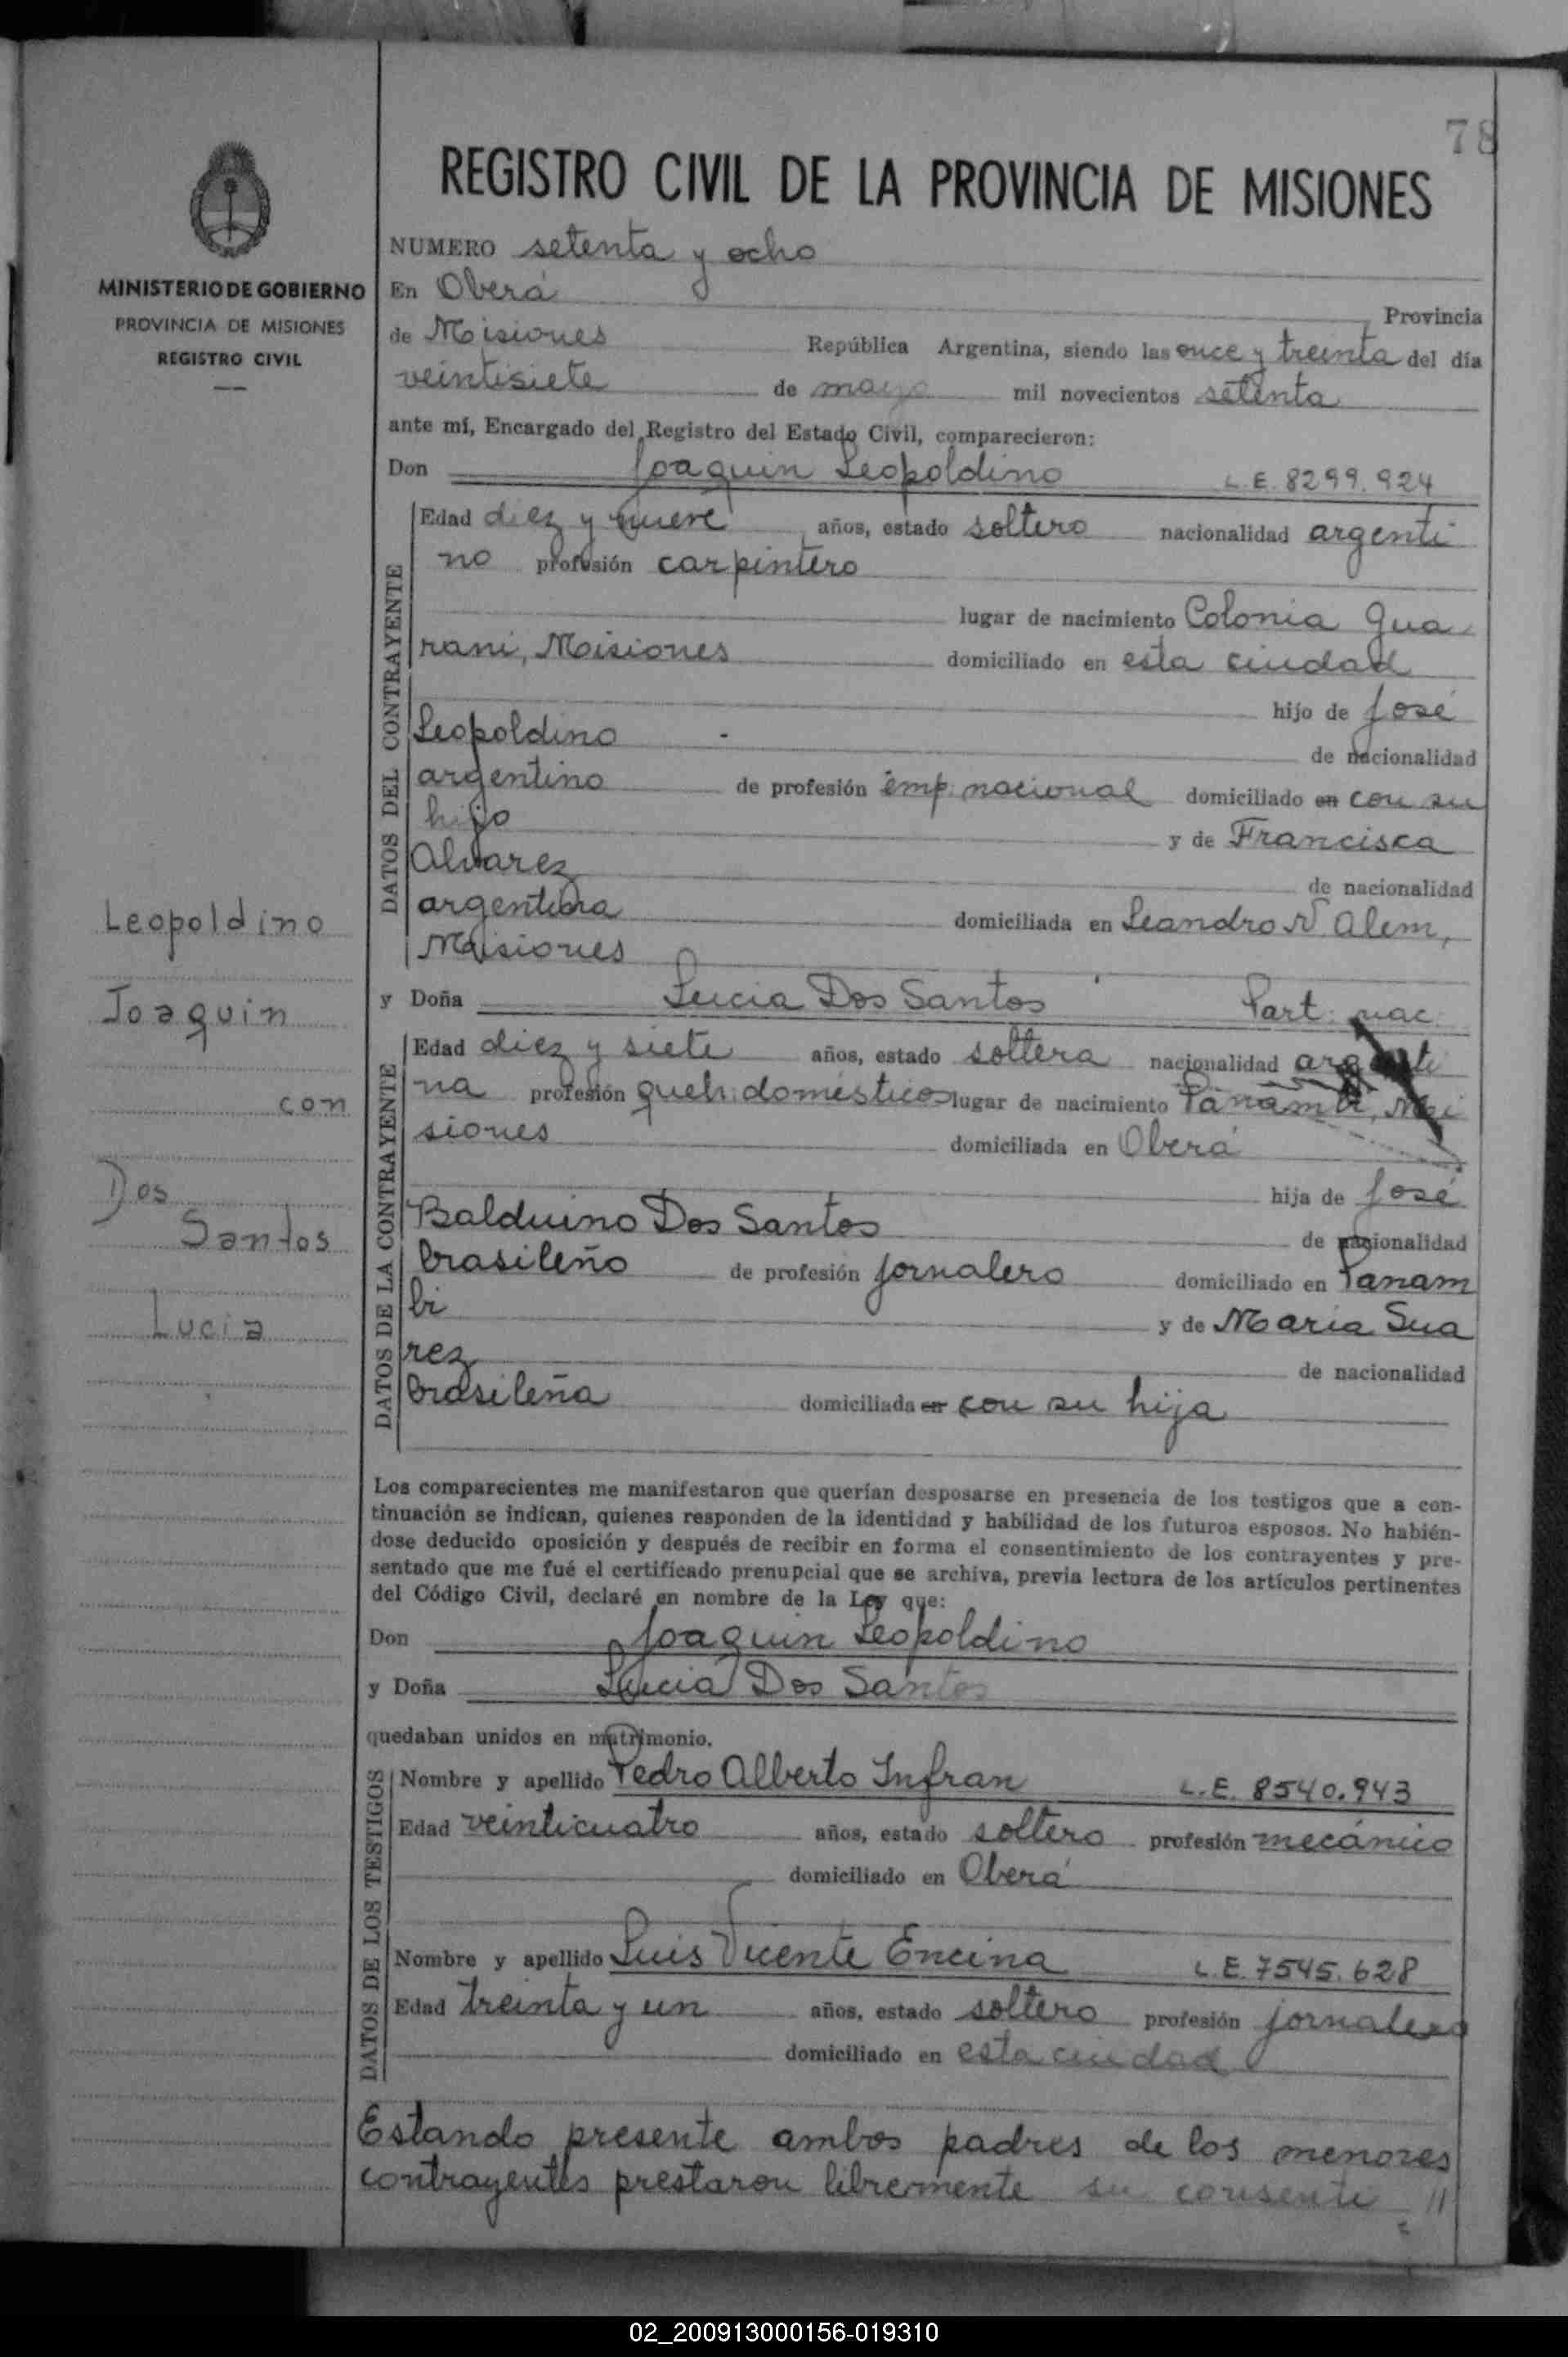 78
REGISTRO CIVIL DE LA PROVINCIA DE MISIONES
MINISTERIO DE GOBIERNO
PROVINCIA DE MISIONES
REGISTRO CIVIL
NUMERO setenta y ocho
En Oberá Provincia
de Misiones República Argentina, siendo las once y treinta del día
veintisiete de mayo mil novecientos setenta
ante mí, Encargado del Registro del Estado Civil, comparecieron:
Don Joaquin Leopoldino L.E. 8299.924
DATOS DEL CONTRAYENTE
Edad diez y nueve años, estado soltero nacionalidad argenti
no profesión carpintero
lugar de nacimiento Colonia Gua
rani, Misiones domiciliado en esta ciudad
hijo de José
Leopoldino de nacionalidad
argentino de profesión emp. nacional domiciliado en con su
hijo y de Francisca
Alvarez de nacionalidad
argentina domiciliada en Leandro N Alem,
Misiones
Leopoldino
Joaquin
con
Dos
Santos
Lucia
y Doña Lucia Dos Santos Part. nac.
DATOS DE LA CONTRAYENTE
Edad diez y siete años, estado soltera nacionalidad argenti
na profesión queh. domésticos lugar de nacimiento Panambi, Mi
siones domiciliada en Oberá
hija de José
Balduino Dos Santos de nacionalidad
brasileño de profesión jornalero domiciliado en Panam
bi y de Maria Sua
rez de nacionalidad
brasileña domiciliada en con su hija
Los comparecientes me manifestaron que querían desposarse en presencia de los testigos que a con-
tinuación se indican, quienes responden de la identidad y habilidad de los futuros esposos. No habién-
dose deducido oposición y después de recibir en forma el consentimiento de los contrayentes y pre-
sentado que me fué el certificado prenupcial que se archiva, previa lectura de los artículos pertinentes
del Código Civil, declaré en nombre de la Ley que:
Don Joaquin Leopoldino
y Doña Lucia Dos Santos
quedaban unidos en matrimonio.
DATOS DE LOS TESTIGOS
Nombre y apellido Pedro Alberto Infran L.E. 8540.943
Edad veinticuatro años, estado soltero profesión mecánico
domiciliado en Oberá
Nombre y apellido Luis Vicente Encina L.E. 7545.628
Edad treinta y un años, estado soltero profesión jornalero
domiciliado en esta ciudad
Estando presente ambos padres de los menores
contrayentes prestaron libremente su consenti //
02_200913000156-019310